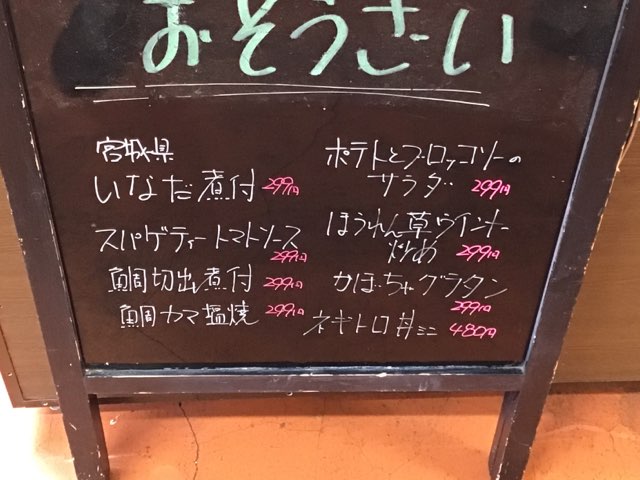 おそうざい
宮城県
いなだ煮付 299円
スパゲティートマトソース
299円
鯛切出煮付 299円
鯛カマ塩焼 299円
ポテトとブロッコリーの
サラダ 299円
ほうれん草ウインナー
炒め 299円
かぼちゃグラタン
299円
ネギトロ丼ミニ 480円